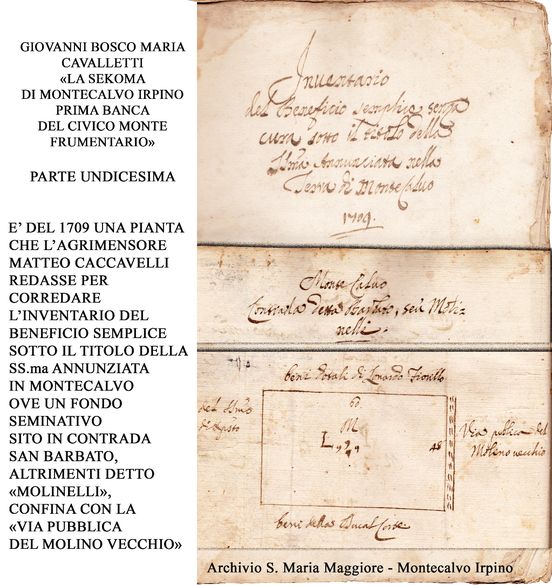 GIOVANNI BOSCO MARIA
CAVALLETTI
«LA SEKOMA
DI MONTECALVO IRPINO
PRIMA BANCA
DEL CIVICO MONTE
FRUMENTARIO»
PARTE UNDICESIMA
E’ DEL 1709 UNA PIANTA
CHE L’AGRIMENSORE
MATTEO CACCAVELLI
REDASSE PER
CORREDARE
L’INVENTARIO DEL
BENEFICIO SEMPLICE
SOTTO IL TITOLO DELLA
SS.ma ANNUNZIATA
IN MONTECALVO
OVE UN FONDO
SEMINATIVO
SITO IN CONTRADA
SAN BARBATO,
ALTRIMENTI DETTO
«MOLINELLI»,
CONFINA CON LA
«VIA PUBBLICA
DEL MOLINO VECCHIO»
Inventario
del Beneficio semplice senza
cura sotto il titolo della
Annunciata nella
Terra di MonteCalvo
1709.
Monte Calvo
Contrada detta seù Moli-
nelli.
beni dotali di Lonardo
60
M
48
Via publica del
Molino vecchio
beni della Ducal Corte
Archivio S. Maria Maggiore - Montecalvo Irpino